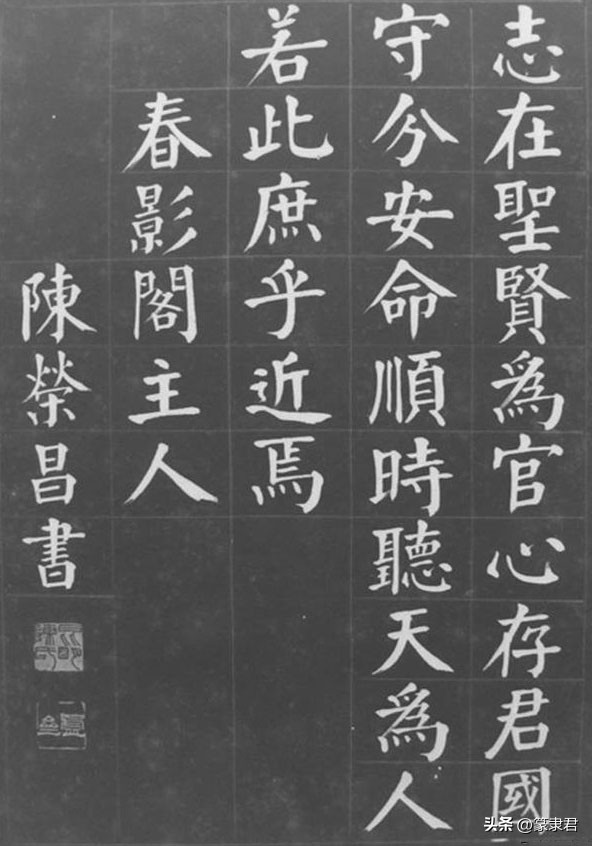 志在聖賢爲官心存君國
守分安命順時聽天爲人
若此庶乎近焉
春影閣主人
陳榮昌書
头条 @篆隶君